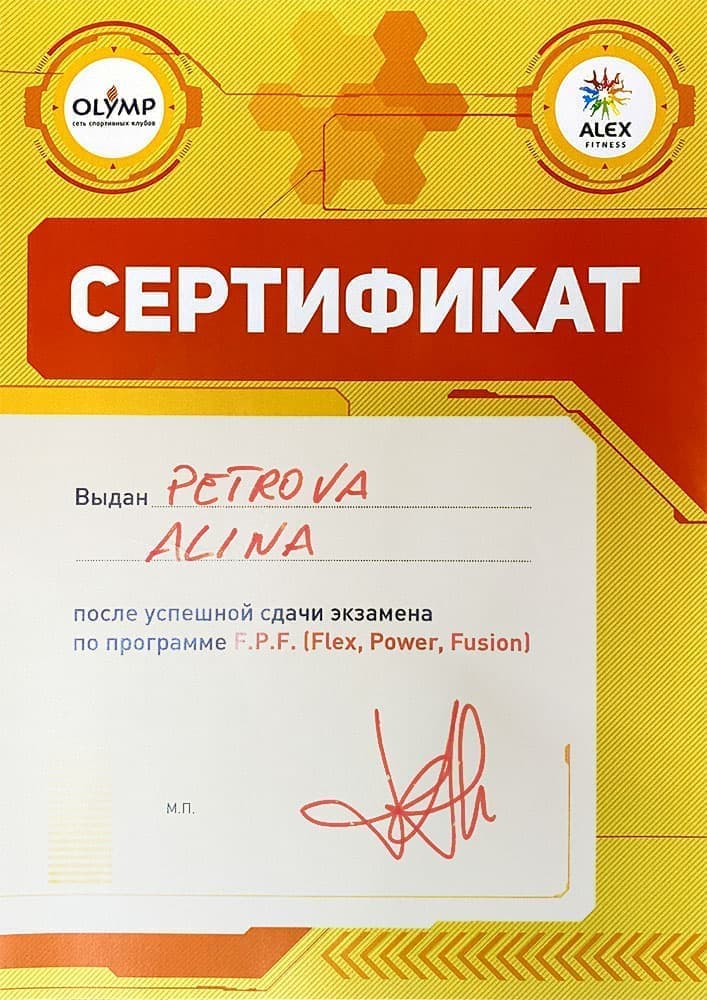 OLYMP
сеть спортивных клубов
ALEX
FITNESS
СЕРТИФИКАТ
Выдан PETROVA
ALINA
после успешной сдачи экзамена
по программе F.P.F. (Flex, Power, Fusion)
М.П.